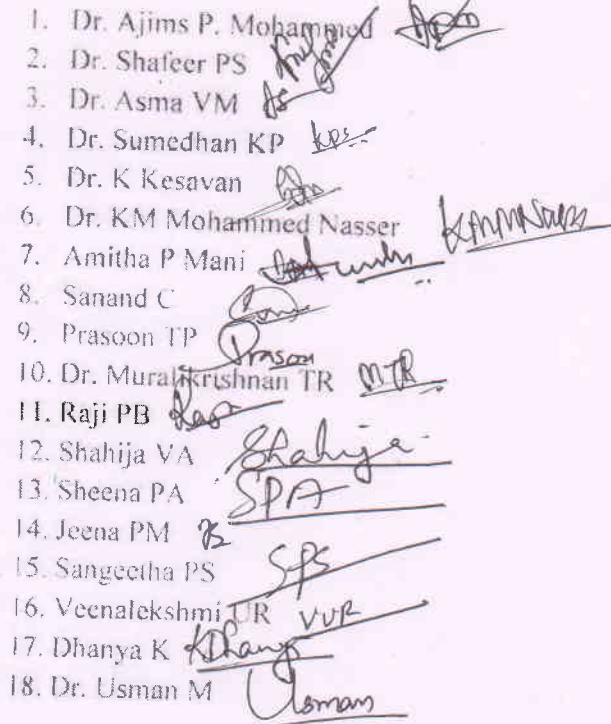 1. Dr. Ajims P. Mohammed
2. Dr. Shafeer PS
3. Dr. Asma VM
4. Dr. Sumedhan KP KPS
5. Dr. K Kesavan
6. Dr. KM Mohammed Nasser KMMNasser
7. Amitha P Mani
8. Sanand C
9. Prasoon TP Prasoon
10. Dr. Muralikrishnan TR MTR
11. Raji PB
12. Shahija VA Shahija
13. Sheena PA SPA
14. Jeena PM
15. Sangeetha PS SPS
16. Veenalekshmi UR VUR
17. Dhanya K KDhanya
18. Dr. Usman M Usman